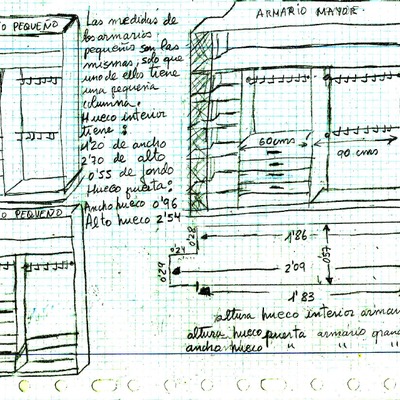 O PEQUEÑO
Las medidas de
los armarios
pequeños son las
mismas, solo que
uno de ellos tiene
una pequeña
columna.
Hueco interior
tiene:
1'20 de ancho
2'70 de alto
0'55 de fondo
Hueco puerta:
Ancho hueco 0'96
Alto hueco 2'54
O PEQUEÑO
ARMARIO MAYOR
60cms
90 cms
0'28
1'86
0'57
0'24
0'29
2'09
1'83
altura hueco interior armari
altura hueco puerta armario gran
ancho hueco " " "